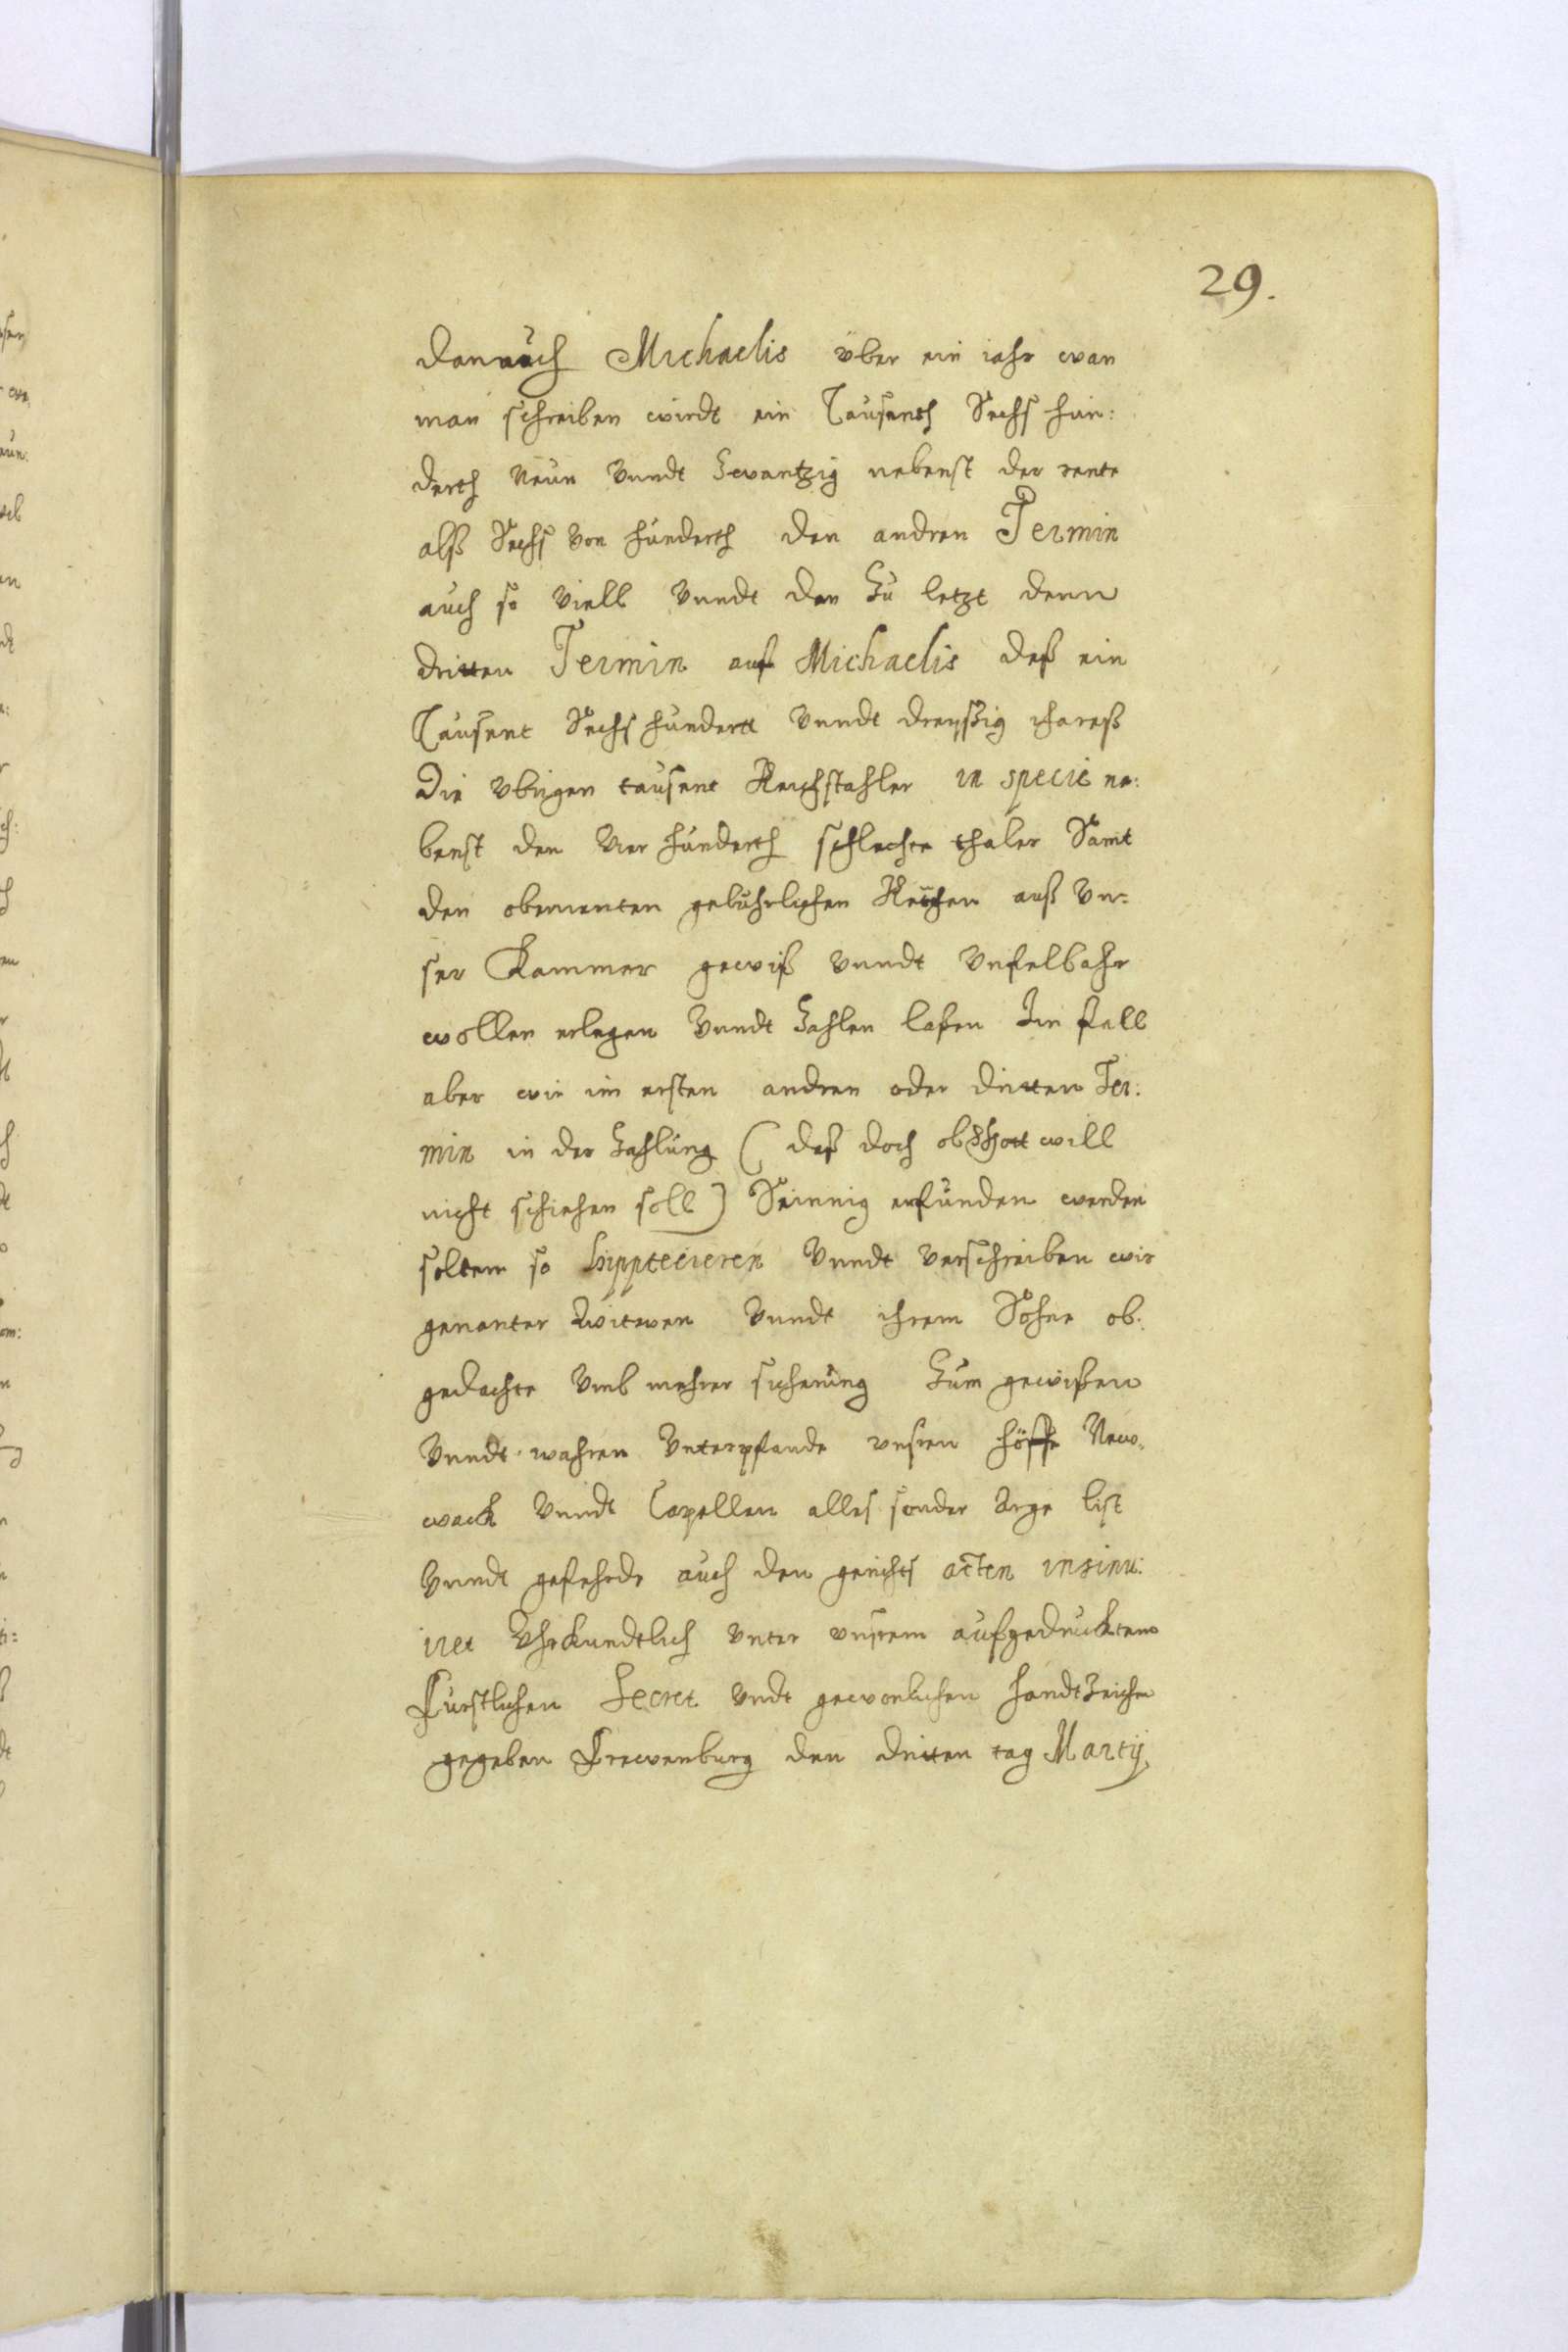 29.
danauch Michaelis über ein iahr wan
man schreiben wirdt ein Tausenth Sechs hun:
derth Neun Vundt Zwantzig nebenst der rente
alß Sechs von hunderth den andren Termin
auch so Viell Vundt den Zu letzt denn
dritten Termin auf Michaelis deß ein
Tausent Sechs hundertt Vundt dreyßig ihareß
Die vbrigen tausent Reichstahler in specie ne:
benst den Vier hunderth schlechte thaler Samt
den obernenten gebuhrlichen auß Vn=
ser Kammer gewiß Vundt Vnfelbahr
wollen erlegen Vundt Zahlen laßen Im fall
aber wir im ersten andren oder dritten Ter:
min in der Zahlung ( daß doch ob Gott will
nicht schiehen soll) Seimig erfunden werden
solten so hippteciren Vundt Verschreiben wir
genanter Witwen Vundt ihrem Sohne ob:
gedachte Vmb mehrer sicherung Zum gewißen
Vundt wahren Vnterpfande vnsren höffe New:
wack Vundt Capellen alles sonder Arge list
Vundt gefehrde auch den gerichts acten insinu:
iret Vhrkundtlich Vnter vnsrem aufgedrucktem
Furstlichen Secret Vndt gewonlichen handtZeichen
gegeben Frewenburg den dritten tag Martij